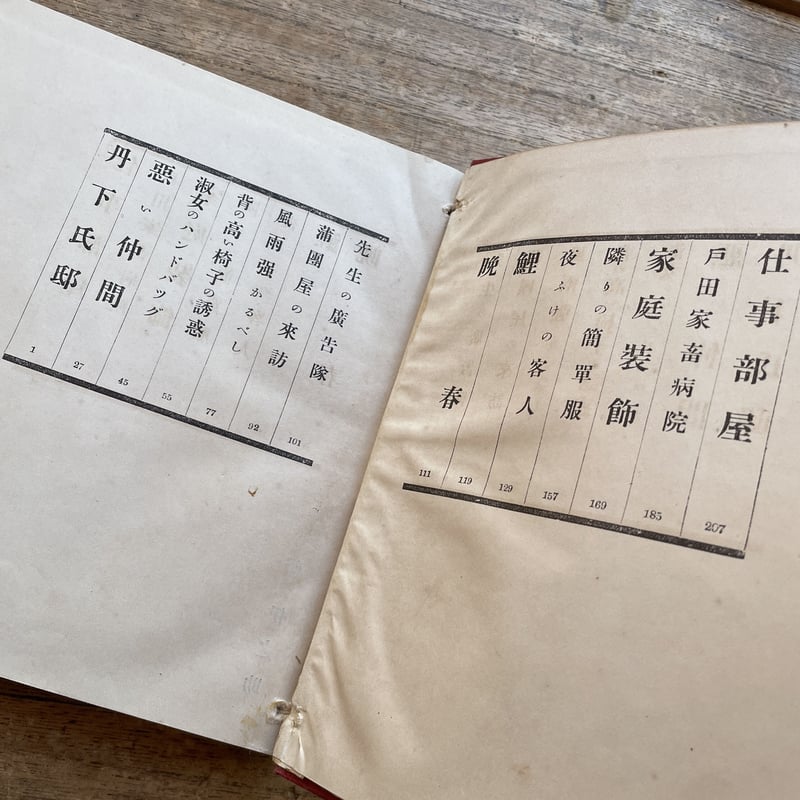 丹下氏邸 1
惡い仲間 27
淑女のハンドバッグ 45
背の高い椅子の誘惑 55
風雨强かるべし 77
蒲團屋の來訪 92
先生の廣告隊 101
晩春 111
鯉 119
夜ふけの客人 129
隣りの簡單服 157
家庭裝飾 169
戸田家畜病院 185
仕事部屋 207